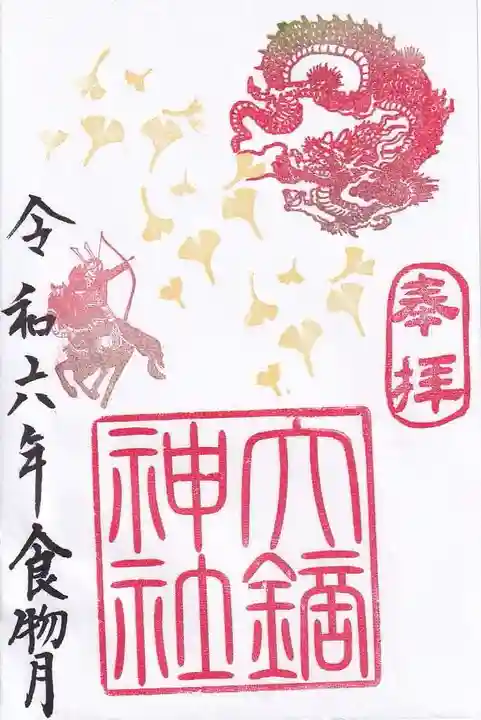 奉拝
六鏑
神社
令和六年食物月